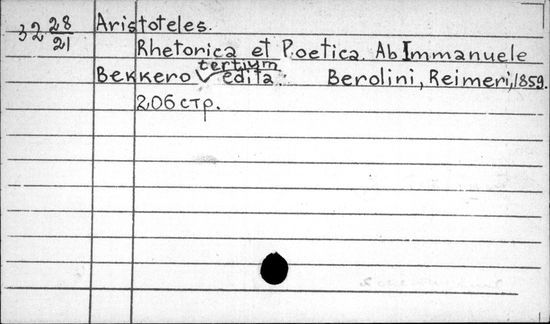 32 28/21 Aristoteles.
Rhetorica et Poetica. Ab Immanuele
Bekkero tertium edita. Berolini, Reimeri, 1859.
206 стр.